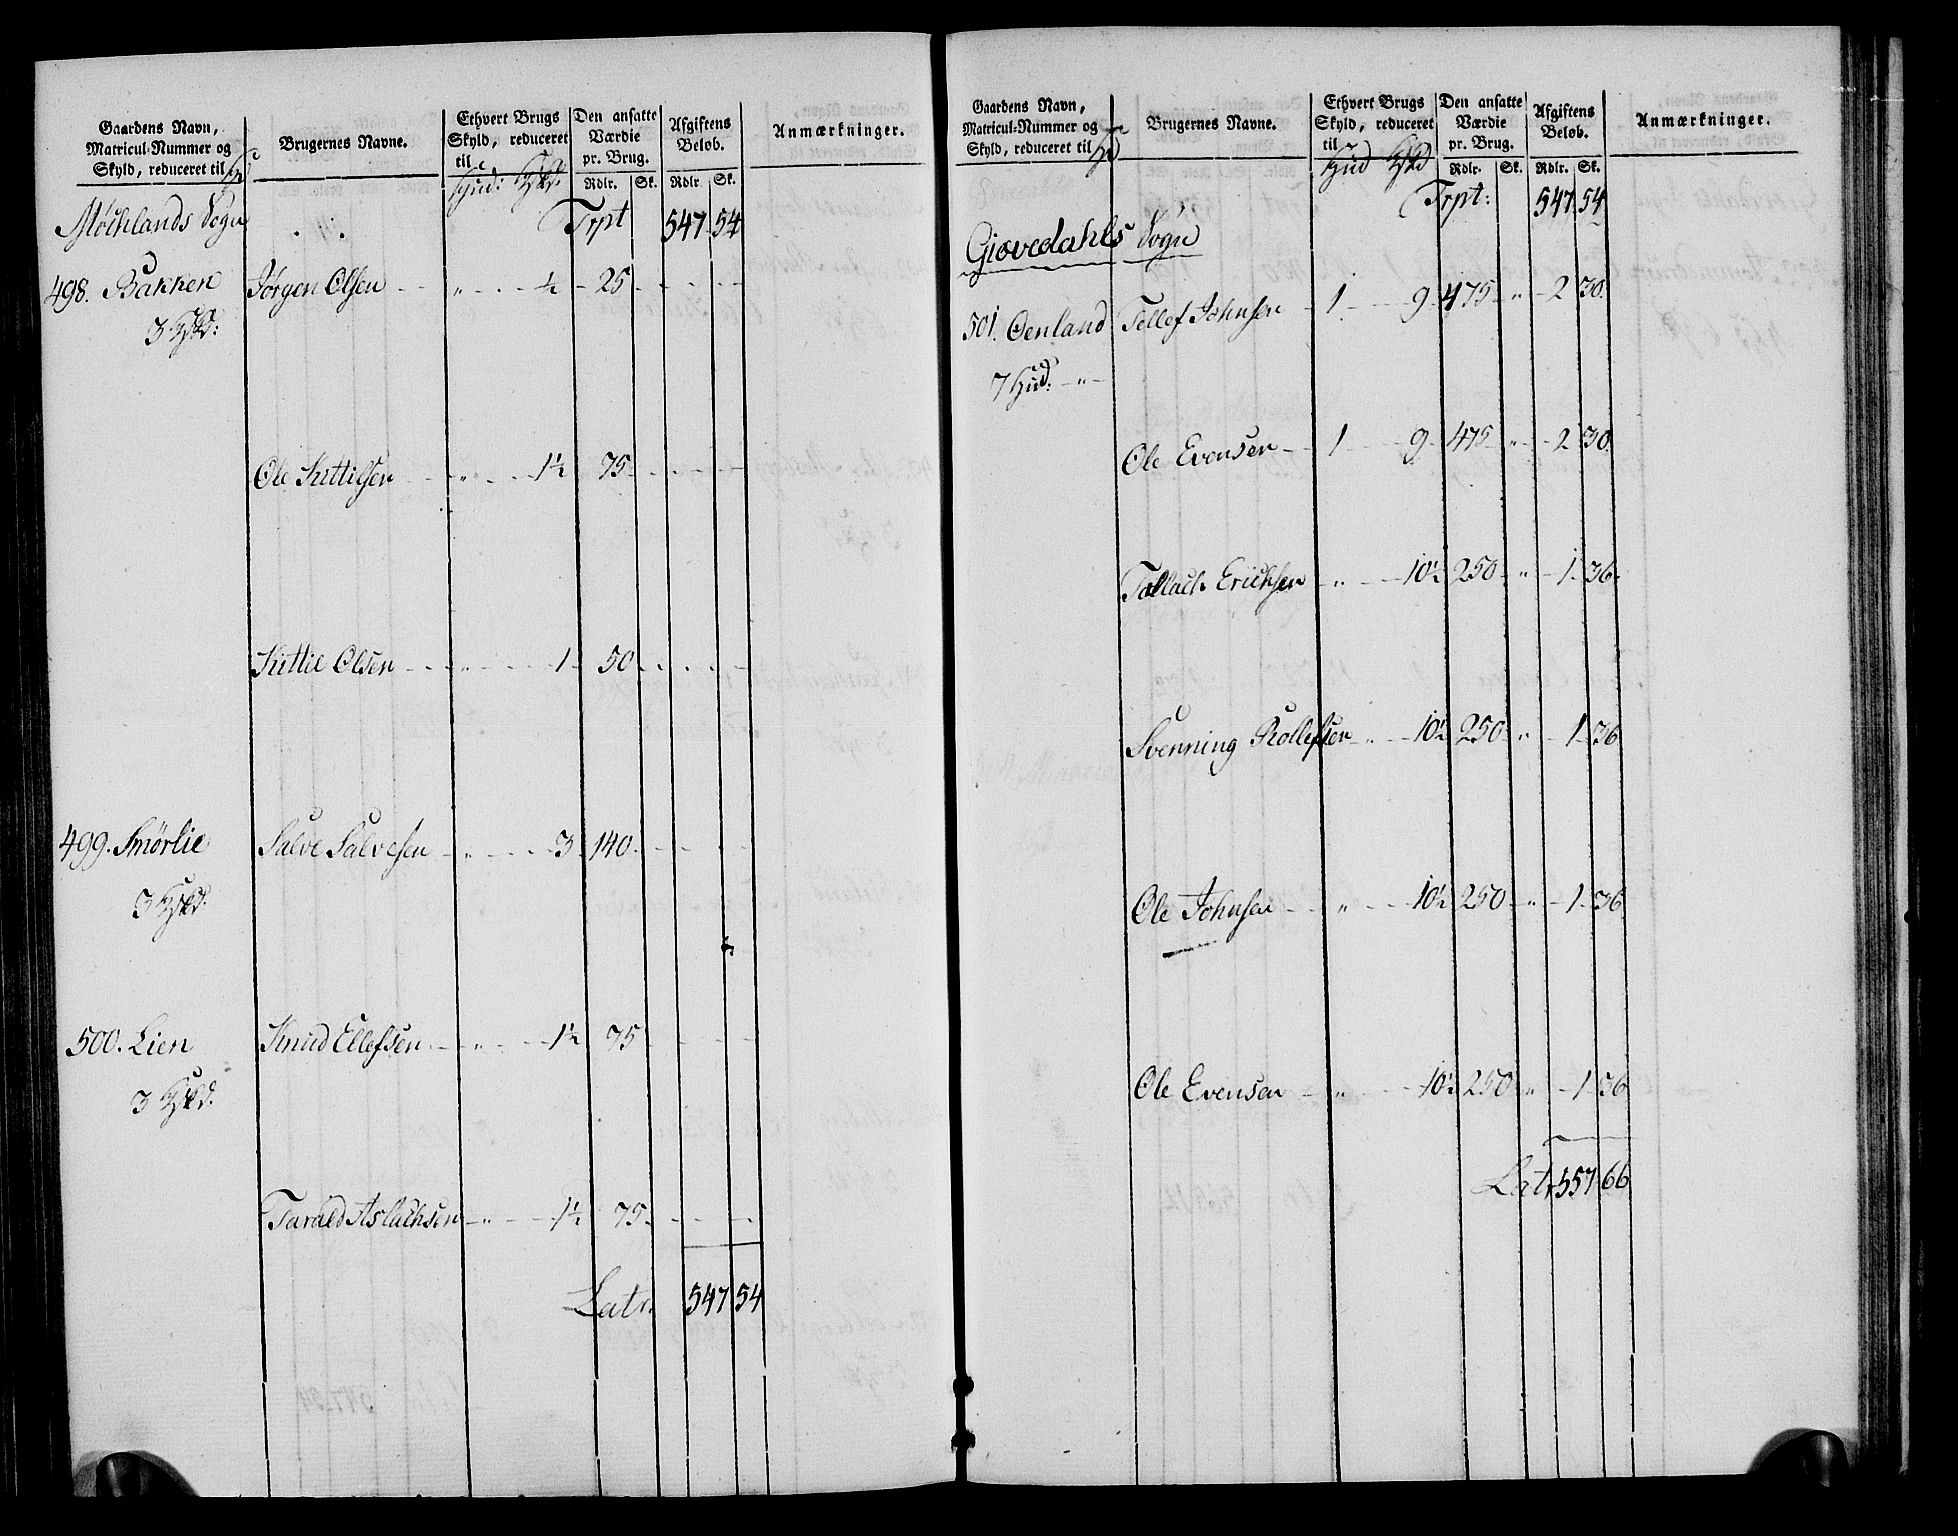 Gaardens Navn, Matricul-Nummer og Skyld, reduceret til | Brugernes Navne. | Ethvert Brugs Skyld, reduceret til Hud: | Den ansatte Værdie pr. Brug. Rdlr. Sk. | Afgiftens Beløb. Rdlr. Sk. | Anmærkninger.
Møchlands Sogn Trpt 547 54
498. Bakken Jørgen Olsen - " - ½ - 25
3
Ole Kittilsen - " - 1½ 75
Kittil Olsen - " - 1 50
499. Smørlie Salve Salvesen - " - 3 140
3
500. Lien Knud Ellefsen - " - 1½ 75
3
Tarald Aslachsen - " - 1½ 75
Latr. 547 54
Gaardens Navn, Matricul-Nummer og Skyld, reduceret til | Brugernes Navne. | Ethvert Brugs Skyld, reduceret til Hud | Den ansatte Værdie pr. Brug. Rdlr. Sk. | Afgiftens Beløb. Rdlr. Sk. | Anmærkninger.
Trpt: 547 54
Giøvedahls Sogn
501. Oenland Tellef Johnsen - 1 - 9 - 475 " - 2 30.
7 Hud: - " -
Ole Evensen - 1 - 9 - 475 - " - 2 30.
Tallach Erichsen - " - 10½ 250 - " - 1 - 36
Svenning Rollefsen - " - 10½ 250 - " - 1 - 36
Ole Johnsen - " - 10½ 250 - " - 1 - 36
Ole Evensen - " - 10½ 250 " - 1 - 36
Latr 557 66